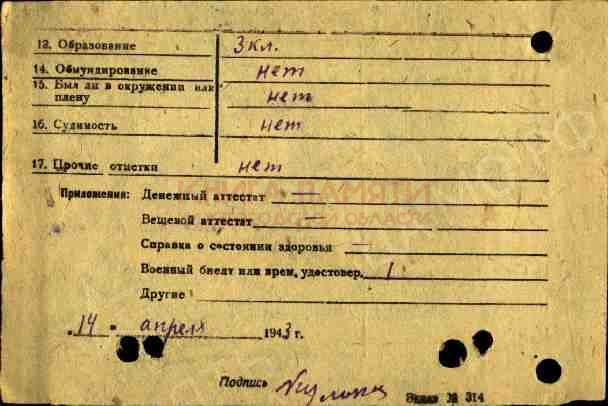 13. Образование 3 кл.
14. Обмундирование нет
15. Был ли в окружении или
плену нет
16. Судимость нет
17. Прочие отметки нет
КНИГА ПАМЯТИ
Приложения: Денежный аттестат —
ОБЛАСТИ
Вещевой аттестат —
Справка о состоянии здоровья —
Военный билет или врем. удостовер. 1
Другие
"14" апреля 1943 г.
Подпись
Заказ № 314